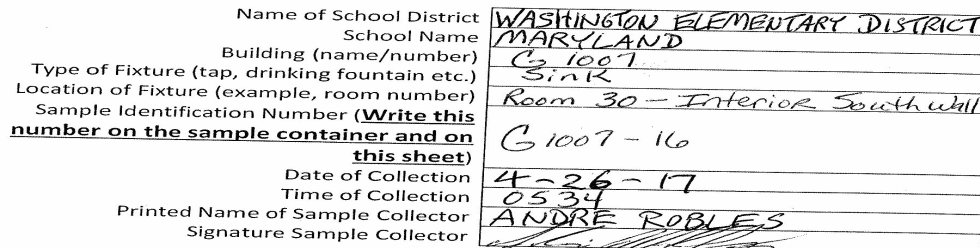 Name of School District WASHINGTON ELEMENTARY DISTRICT
School Name MARYLAND
Building (name/number) G 1007
Type of Fixture (tap, drinking fountain etc.) Sink
Location of Fixture (example, room number) Room 30 - Interior South Wall
Sample Identification Number (Write this
number on the sample container and on G1007-16
this sheet)
Date of Collection 4-26-17
Time of Collection 0534
Printed Name of Sample Collector ANDRE ROBLES
Signature Sample Collector